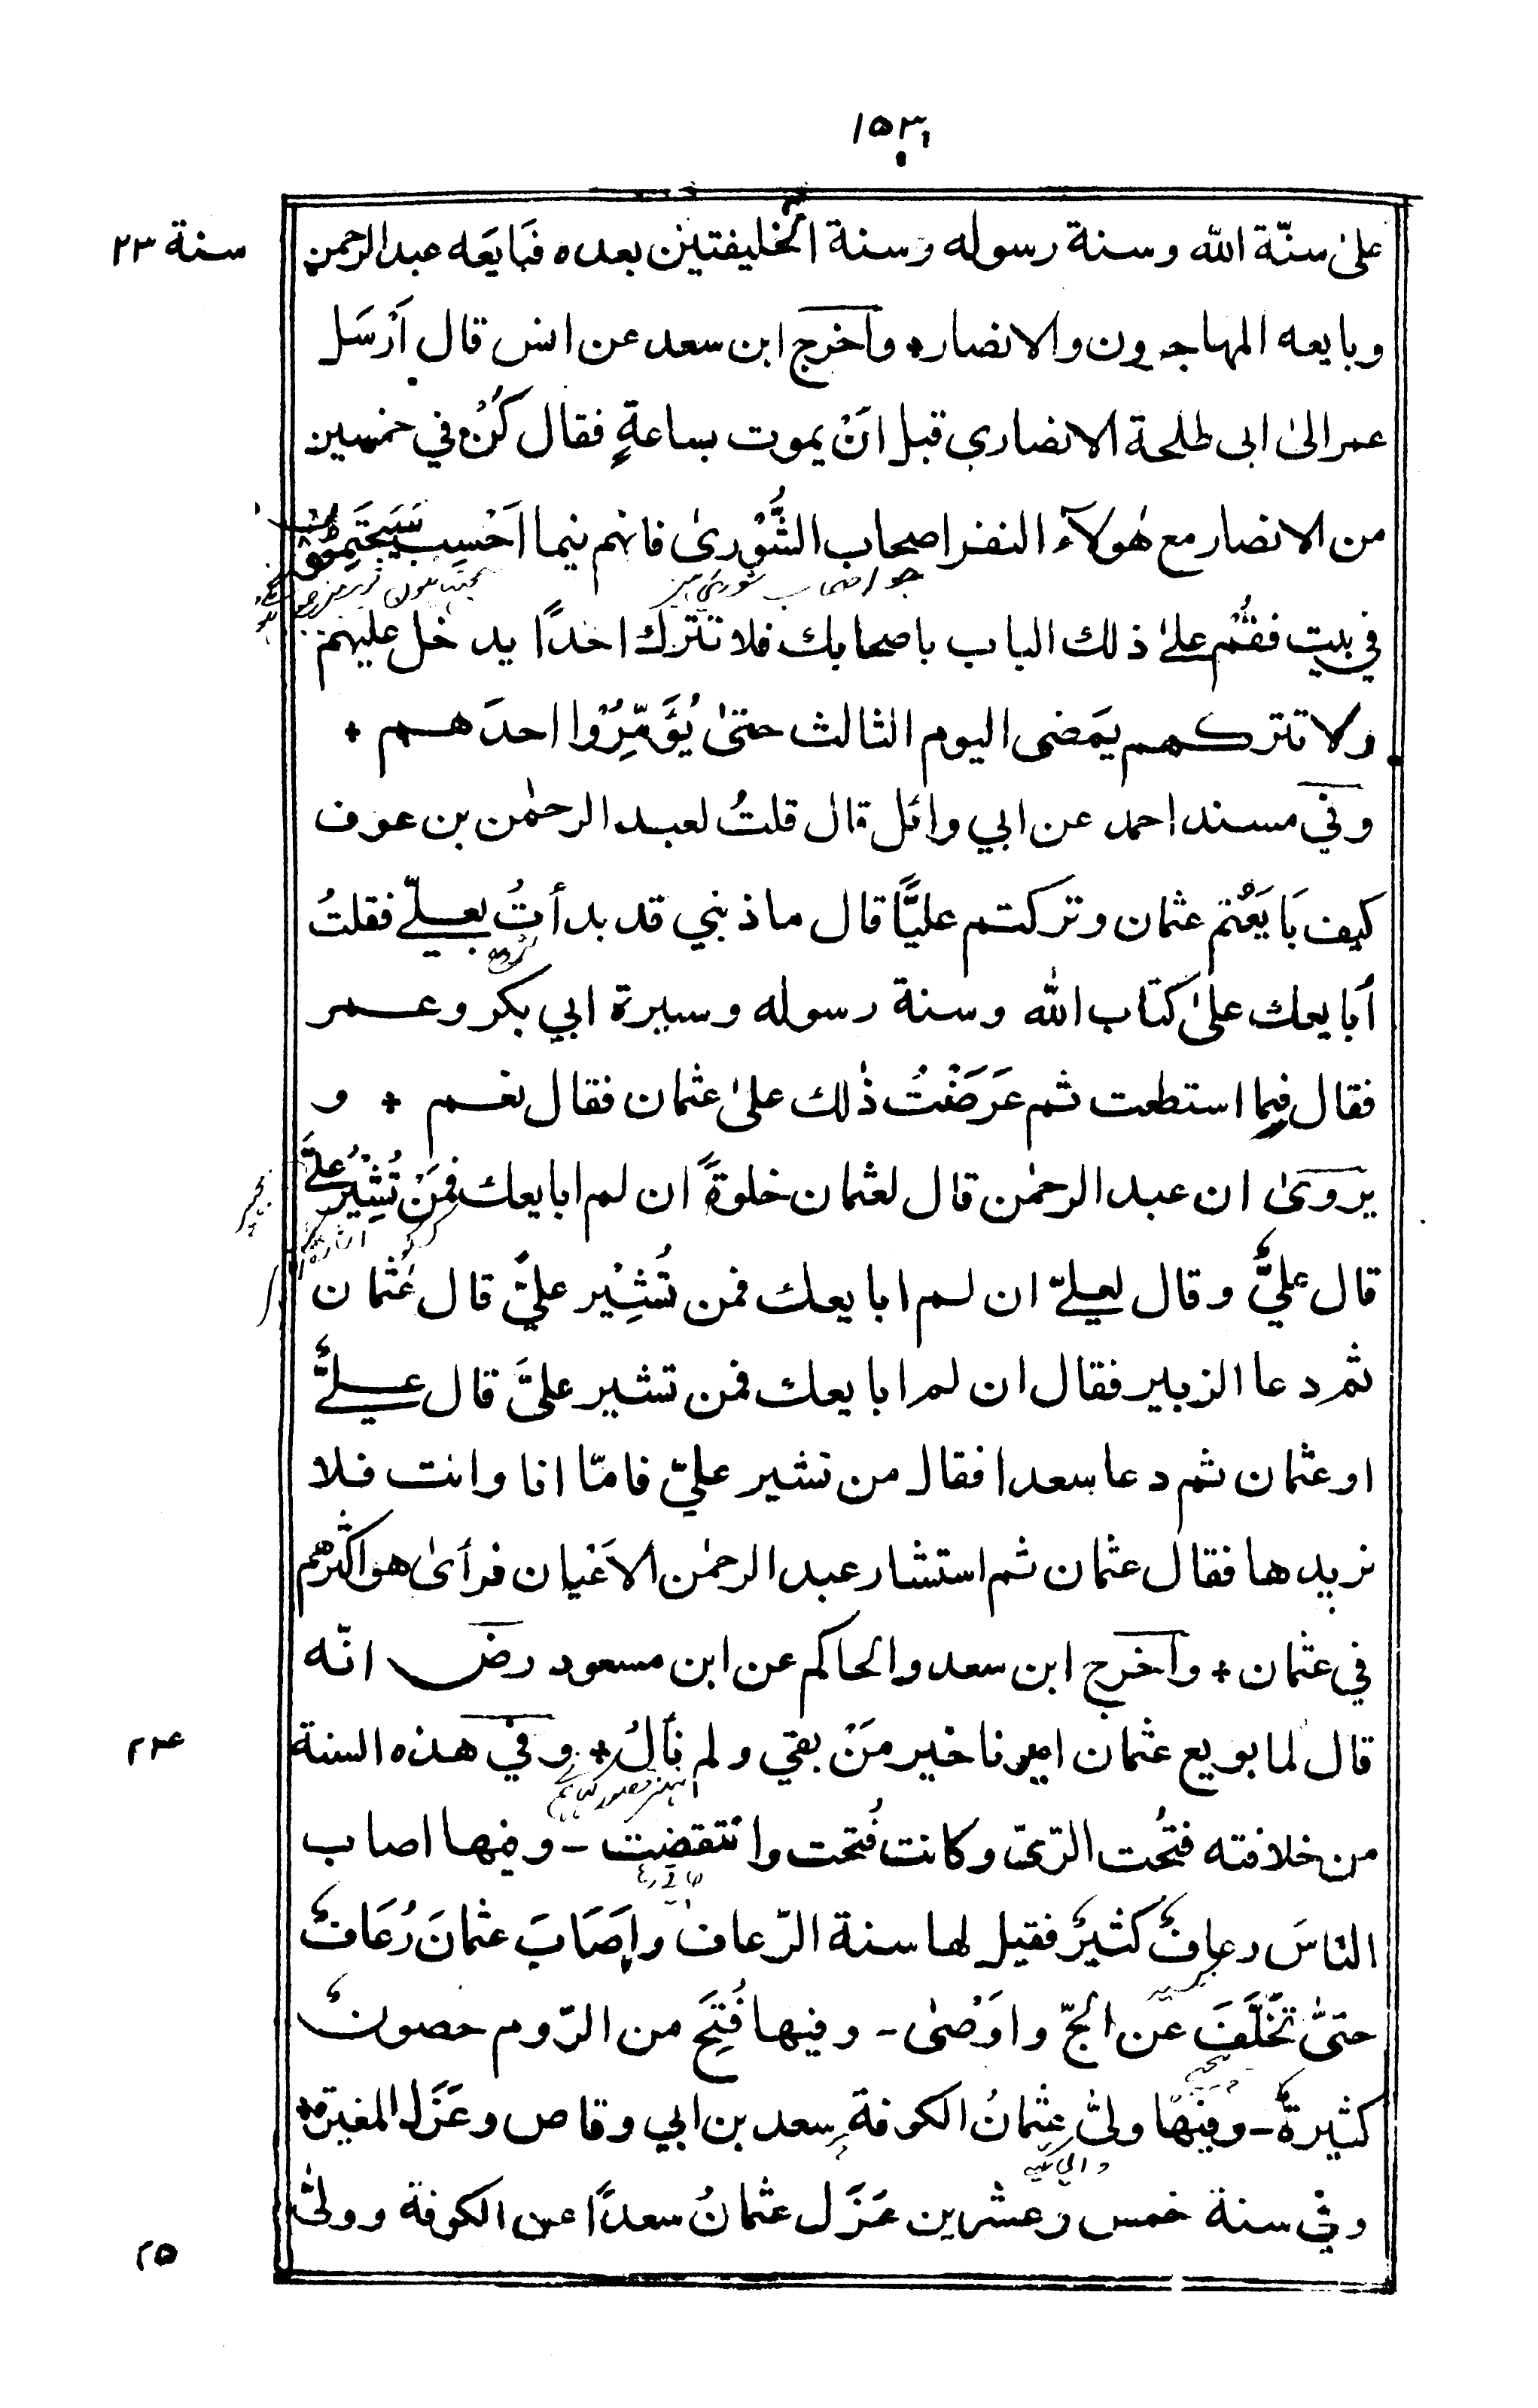 ١٥٣
سنة ٢٣
علىٰ سنّة الله وسنة رسوله وسنة الخليفتين بعده فبَايَعَه عبد الرحمن
وبايعه المهاجرون والانصار٭ وآخرج ابن سعد عن انس قال اَرْسَل
عمر الىٰ ابى طلحة الانصاري قبل اَنْ يموت بساعةٍ فقال كُنْ في خمسين
من الانصار مع هٰولآء النفر اصحاب الشُّوْرىٰ فانهم فيما اَحْسِب سَيَجْتَمِعُوْنَ
جو اصحاب شوري هين
في بيت فقُمْ علىٰ ذلك الباب باصحابك فلا تترك احدًا يدخل عليهم
ولا تتركهم يَمضى اليوم الثالث حتىٰ يُؤَمِّرُوْا احدَهم ٭
وفي مسند احمد عن ابي وائل قال قلتُ لعبد الرحمٰن بن عوف
كيف بَايَعْتم عثمان وتركتم عليًّا قال ما ذنبي قد بدأتُ بعليّ فقلتُ
أبايعك علىٰ كتاب الله وسنة رسوله وسيرة ابي بكر وعمر
فقال فيما استطعت ثم عَرَضْتُ ذٰلك علىٰ عثمان فقال نعم ٭ و
يروىٰ ان عبد الرحمٰن قال لعثمان خلوةً ان لم ابايعك فمَنْ تُشِيْرُ علَيَّ
قال عليٌّ وقال لعليّ ان لم ابايعك فمن تُشِيْر عليَّ قال عُثمان
ثم دعا الزبير فقال ان لم ابايعك فمن تشير عليَّ قال عليٌّ
او عثمان ثم دعا سعدا فقال من تشير عليّ فامّا انا وانت فلا
نريدها فقال عثمان ثم استشار عبد الرحمٰن الاَعْيان فرأىٰ هوا اكثرهم
في عثمان ٭ وآخرج ابن سعد والحاكم عن ابن مسعود رضـ انّه
قال لما بويع عثمان اميرنا خير مَنْ بقي ولم نَألُ٭ وفي هذه السنة
٢٤
من خلافته فتُحت الرّيّ وكانت فُتحت وانتقضت - وفيها اصاب
الناسَ رعافٌ كثيرٌ فقيل لها سنة الرّعاف واَصَابَ عثمانَ رُعَافٌ
حتىّٰ تخَلَّفَ عن الحجّ واوَصٰى - وفيها فُتِحَ من الرّوم حصونٌ
كثيرةٌ - وفيها ولىّٰ عثمانُ الكوفة سعد بن ابي وقاص وعَزَل المغيرة٭
وفي سنة خمس وعشرين عَزَل عثمانُ سعدًا عن الكوفة وولىّٰ
٢٥